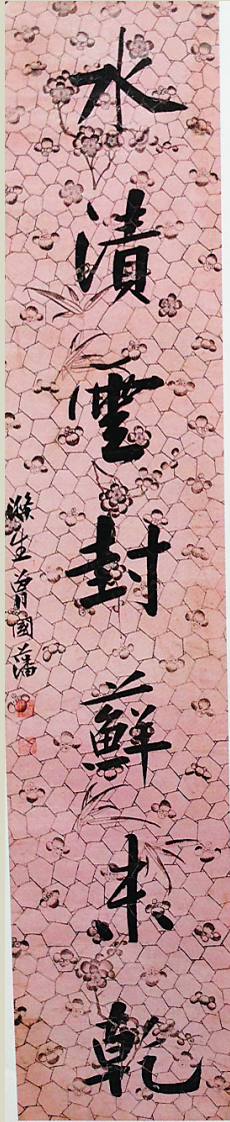 水漬雲封蘚未乾
滌生曾國藩